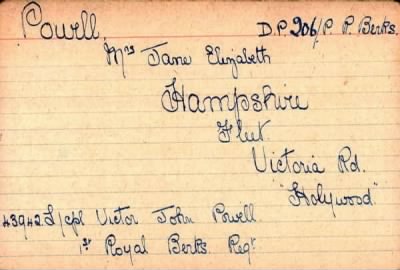 Powell, D.P. 206/P.P. Berks.
Mrs Jane Elizabeth
Hampshire
Fleet
Victoria Rd.
"Holywood"
43942 L/cpl Victor John Powell
1st Royal Berks. Regt